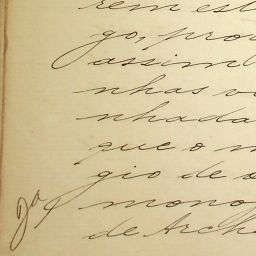 rem est
go, prov
assim
nhas vi
nhada
que o m
gio de
mono
de Arch
Ja